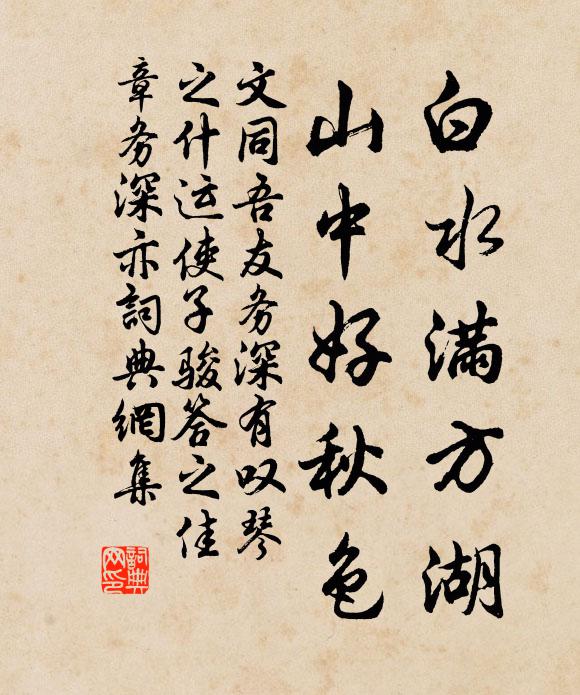 白水满方湖
山中好秋色
文同吾友务深有叹琴
之什运使子骏答之佳
章务深亦詞典網集
詞典网印